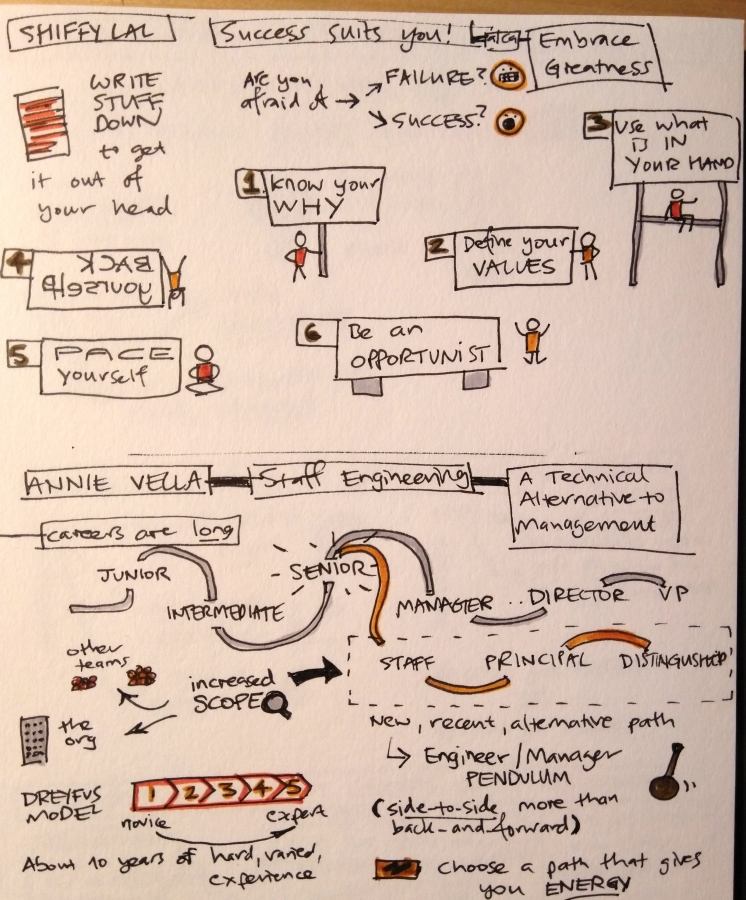 SHIFFY LAL
Success suits you!
Embrace
Greatness
WRITE
STUFF
DOWN
to get
it out of
your head
Are you
afraid of →
↗ FAILURE?
↘ SUCCESS?
1. Know your
WHY
2 Define your
VALUES
3 Use what
IS IN
YOUR HAND
4 BACK
yourself
5 PACE
yourself
6 Be an
OPPORTUNIST
ANNIE VELLA
Staff Engineering
A Technical
Alternative to
Management
careers are long
JUNIOR
INTERMEDIATE
SENIOR
MANAGER .. DIRECTOR VP
STAFF PRINCIPAL DISTINGUSHED
other
teams
increased
SCOPE
the
org
New, recent, alternative path
↳ Engineer/Manager
PENDULUM
(side-to-side, more than
back-and-forward)
DREYFUS
MODEL
1 2 3 4 5
novice
expert
About 10 years of hard, varied,
experience
choose a path that gives
you ENERGY